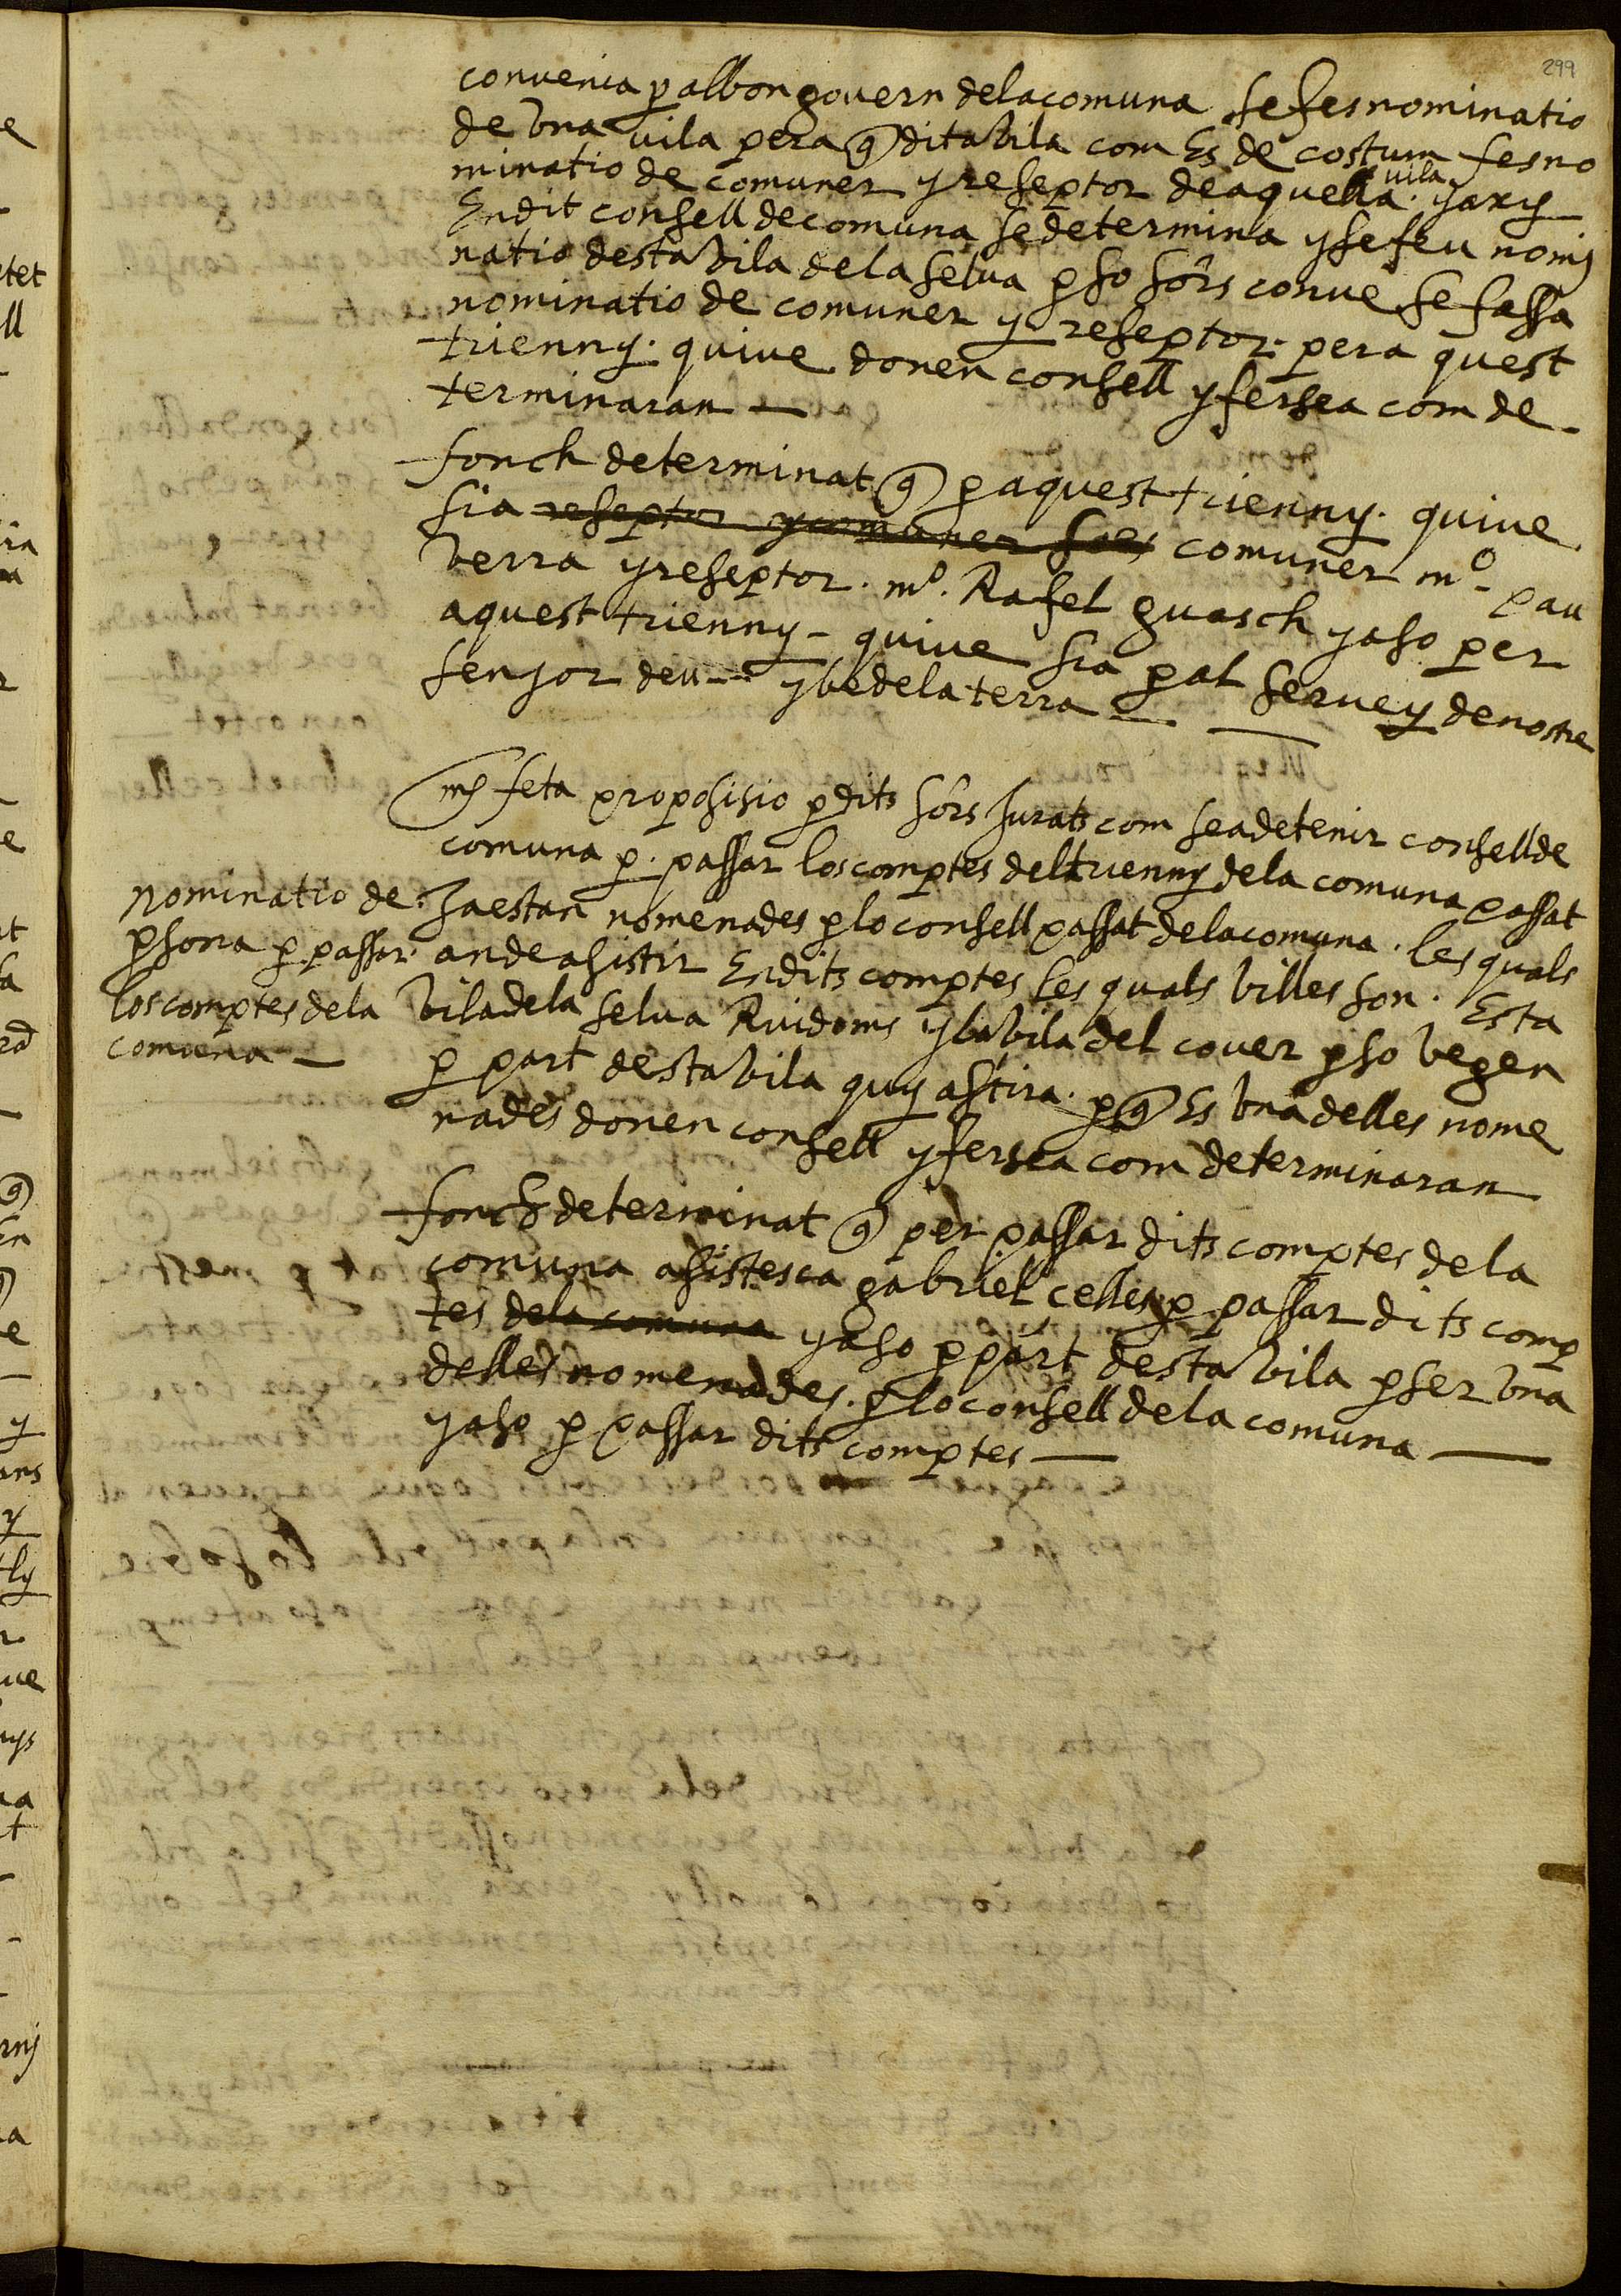 299
convenia p al bon govern de la comuna se fes nominatio
de vna vila pera q dita vila com Es de costum fes no
minatio de comuner y reseptor de aquella vila y axy
En dit consell de comuna se determina y se feu nomi
natio desta vila de la selva p so sors conve se fassa
nominatio de comuner y reseptor pera quest
trienny quive donen consell y fersea com de
terminaran —
fonch determinat q p aquest trienny quive
sia reseptor y comuner comuner mº pau
verra y reseptor mº Rafel guasch y aso per
aquest trienny quive sia p al servey de nostre
senyor deu y be de la terra —
mes feta proposisio p dits sors Jurats com sea de tenir consell de
comuna p passar los comptes del trienny de la comuna passat
Ja estan nomenades p lo consell passat de la comuna les quals
an de asistir En dits comptes les quals villes son Esta
vila de la selva Ruidoms y la vila del cover p so vegen
p part desta vila quy astira p q Es vna delles nome
nades donen consell y fersea com determinaran
nominatio de
psona p passar
los comptes de la
comuna —
fonch determinat q per passar dits comptes de la
comuna assistesca gabriel celles p passar dits comp
tes de la comuna y aso p part desta vila p ser vna
delles nomenades p lo consell de la comuna —
y aso p passar dits comptes —